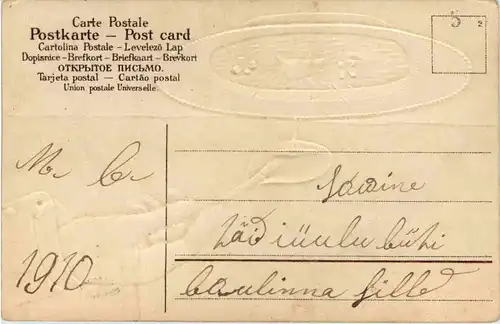 Carte Postale
Postkarte — Post card
Cartolina Postale – Levelező Lap
Dopisnice – Brefkort – Briefkaart – Brevkort
ОТКРЫТОЕ ПИСЬМО.
Tarjeta postal — Cartão postal
Union postale Universelle.
5 2
M. C.
1910
häid jüulu pühi
paulinna sille